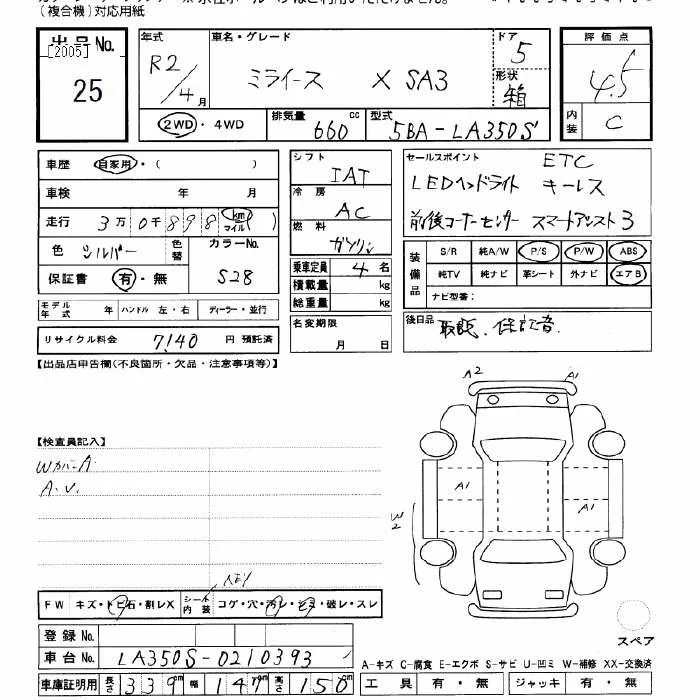 (複合機)対応用紙
出品No.
[2005]
25
年式
R2/4月
車名・グレード
ミライース X SA3
ドア
5
形状
箱
評価点
4.5
内装
C
2WD・4WD
排気量 660 cc
型式 5BA-LA350S
車歴 自家用・( )
車検 年 月
走行 3万0千898 km マイル
色 シルバー 色替 カラーNo.
保証書 有・無 S28
モデル年式 年 ハンドル 左・右 ディーラー・並行
リサイクル料金 7,140 円 預託済
シフト
IAT
冷房
AC
燃料
ガソリン
乗車定員 4 名
積載量 kg
総重量 kg
名変期限
月 日
セールスポイント ETC
LEDヘッドライト キーレス
前後コーナーセンサー スマートアシスト3
装備品
S/R 純A/W P/S P/W ABS
純TV 純ナビ 革シート 外ナビ エアB
ナビ型番:
後日品 取説、保証書.
【出品店申告欄(不良箇所・欠品・注意事項等)】
A2 A1
【検査員記入】
Wカバー A
A.V.
A1 A1
W2
FW キズ・トビ石・割レX シート内装 コゲ・穴・汚レ・シミ・破レ・スレ
登録No.
車台No. LA350S-0210393
車庫証明用 長さ 339 幅 147 高さ 150
スペア
A-キズ C-腐食 E-エクボ S-サビ U-凹ミ W-補修 XX-交換済
工具 有・無 ジャッキ 有・無